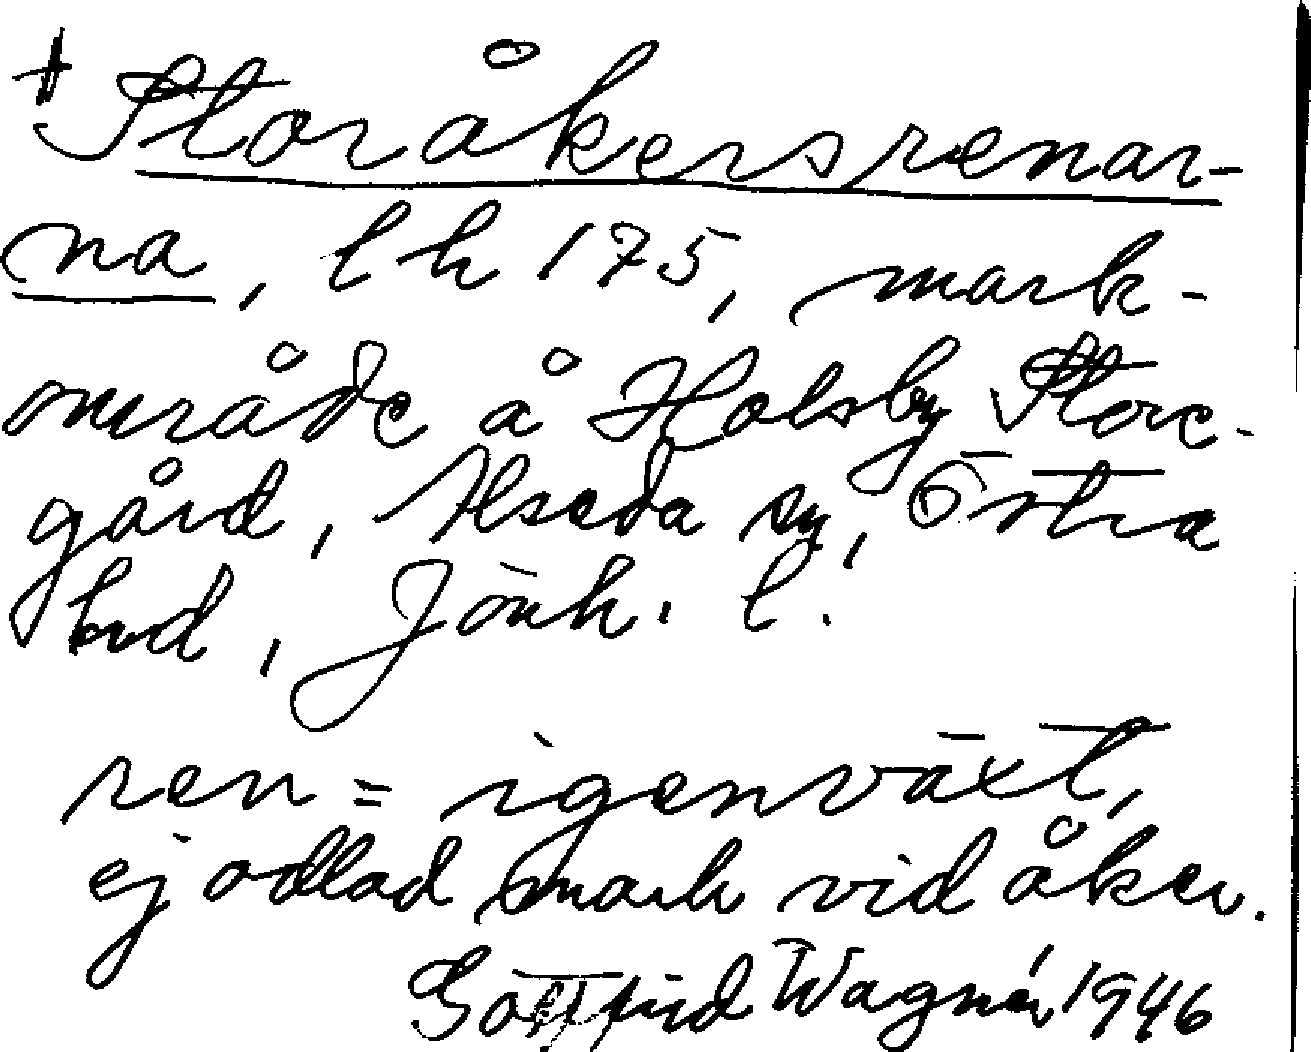 † Storåkersrenar-
na, lh 175, mark-
område å Holsby Store-
gård, Alseda sn, Östra
hd, Jönk. l.
ren = igenväxt,
ej odlad mark vid åker.
Gottfrid Wagnér 1946